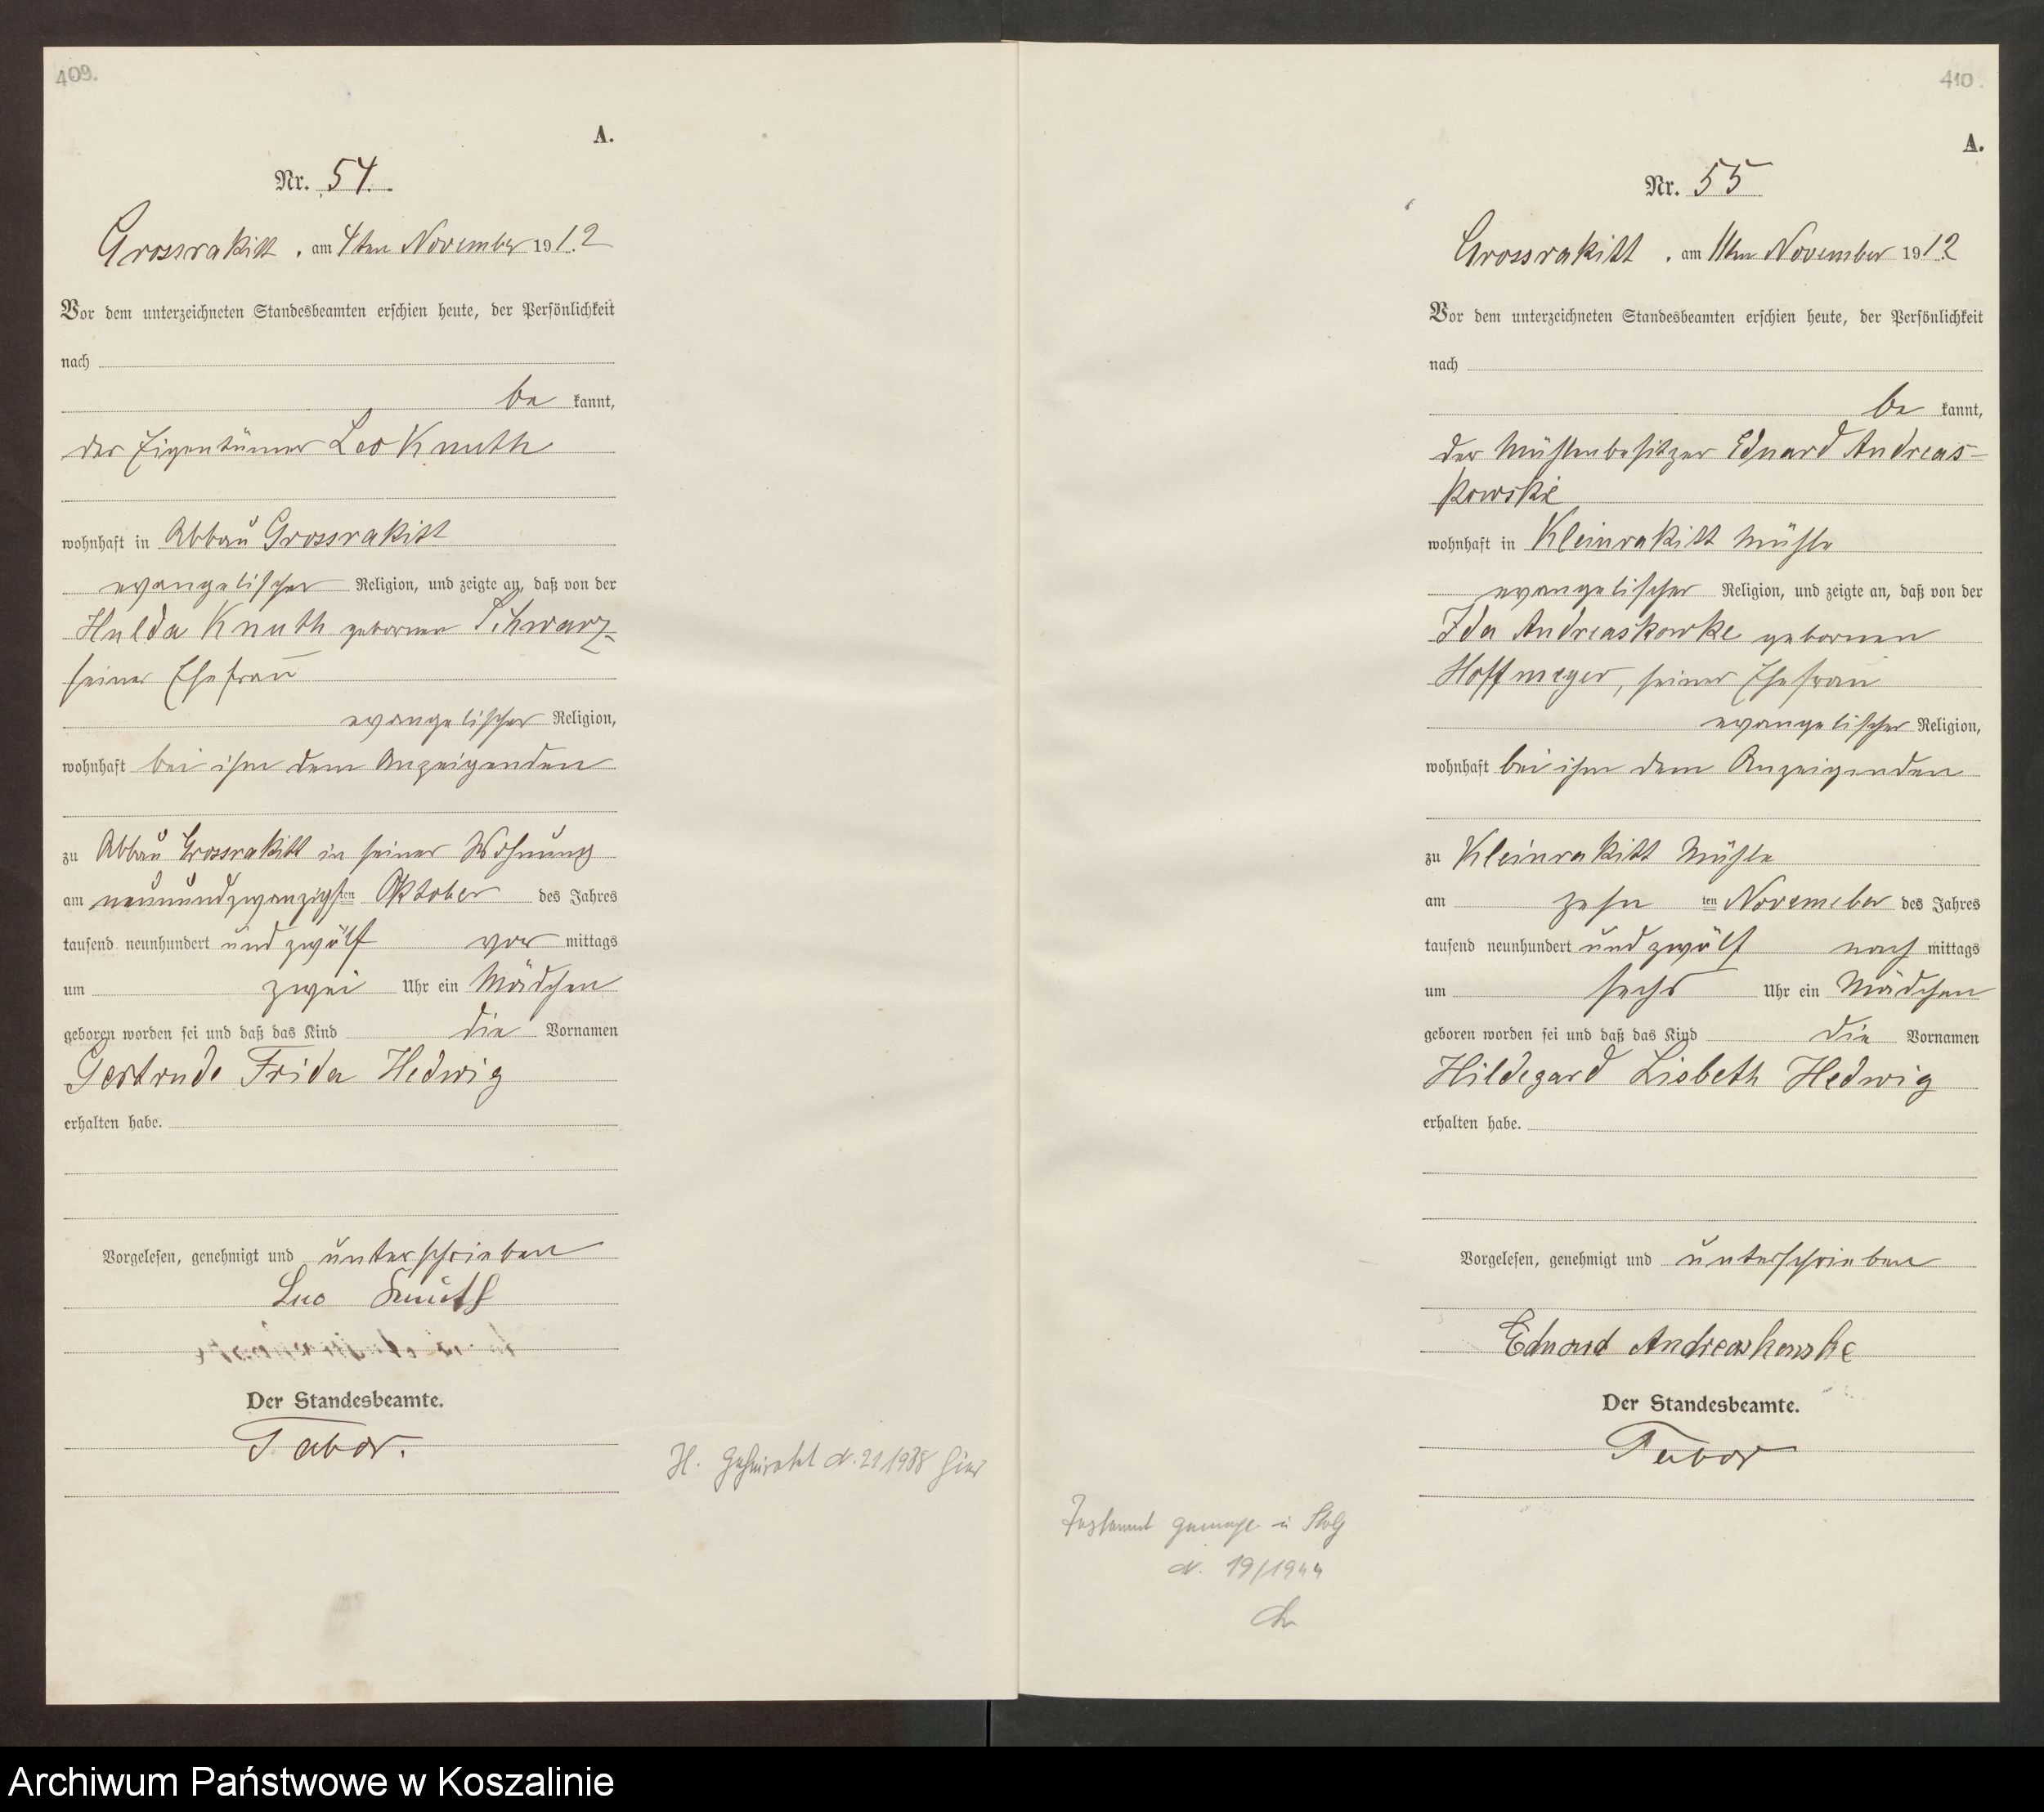 409.
A.
Nr. 54.
Grossrakitt, am 4ten November 1912
Vor dem unterzeichneten Standesbeamten erschien heute, der Persönlichkeit
nach
be kannt,
der Eigentümer Leo Knuth
wohnhaft in Abbau Grossrakitt
evangelischer Religion, und zeigte an, daß von der
Hulda Knuth geborenen Schwarz
seiner Ehefrau
evangelischer Religion,
wohnhaft bei ihm dem Anzeigenden
zu Abbau Grossrakitt in seiner Wohnung
am neunundzwanzigsten Oktober des Jahres
tausend neunhundert und zwölf vor mittags
um zwei Uhr ein Mädchen
geboren worden sei und daß das Kind die Vornamen
Gertrude Frida Hedwig
erhalten habe.
Vorgelesen, genehmigt und unterschrieben
Leo Knuth
Der Standesbeamte.
Tabor.
H. Geheiratet N. 21/1938 hier
410.
A.
Nr. 55
Grossrakitt, am 11ten November 1912
Vor dem unterzeichneten Standesbeamten erschien heute, der Persönlichkeit
nach
be kannt,
der Mühlenbesitzer Eduard Andreas-
kowske
wohnhaft in Kleinrakitt Mühle
evangelischer Religion, und zeigte an, daß von der
Ida Andreaskowke geborenen
Hoffmeyer, seiner Ehefrau
evangelischer Religion,
wohnhaft bei ihm dem Anzeigenden
zu Kleinrakitt Mühle
am zehn ten November des Jahres
tausend neunhundert und zwölf nach mittags
um sechs Uhr ein Mädchen
geboren worden sei und daß das Kind die Vornamen
Hildegard Lisbeth Hedwig
erhalten habe.
Vorgelesen, genehmigt und unterschrieben
Eduard Andreaskowske
Der Standesbeamte.
Tabor
N. 19/1944
Archiwum Państwowe w Koszalinie